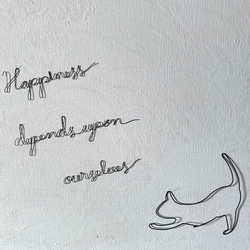 Happiness
depends upon
ourselves